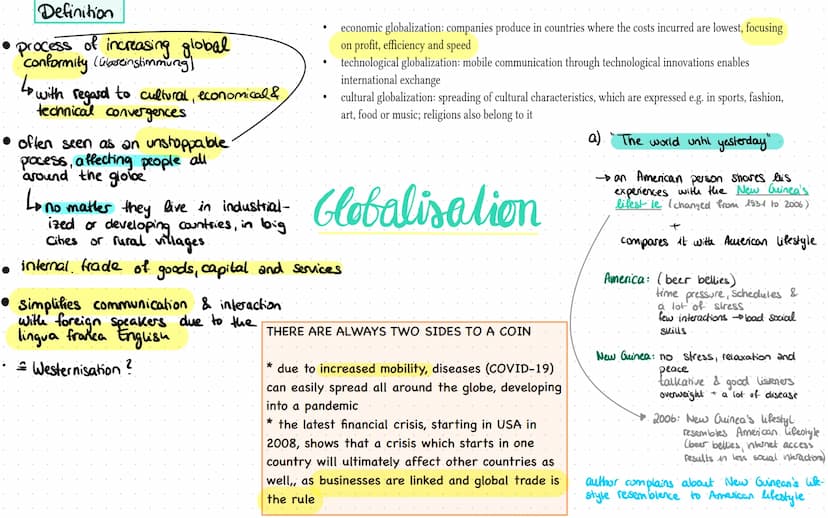 Definition
process of increasing global
conformity (Übereinstimmung)
with regard to cultural, economical &
technical convergences
often seen as an unstoppable
process, affecting people all
around the globe
no matter they live in industrial-
ized or developing countries, in big
cities or rural villages
internal. trade of goods, capital and services
simplifies communication & interaction
with foreign speakers due to the
lingua franca English
≙ Westernisation?
• economic globalization: companies produce in countries where the costs incurred are lowest, focusing
on profit, efficiency and speed
• technological globalization: mobile communication through technological innovations enables
international exchange
• cultural globalization: spreading of cultural characteristics, which are expressed e.g. in sports, fashion,
art, food or music; religions also belong to it
Globalisation
THERE ARE ALWAYS TWO SIDES TO A COIN
* due to increased mobility, diseases (COVID-19)
can easily spread all around the globe, developing
into a pandemic
* the latest financial crisis, starting in USA in
2008, shows that a crisis which starts in one
country will ultimately affect other countries as
well,, as businesses are linked and global trade is
the rule
a) "The world until yesterday"
→ an American person shares his
experiences with the New Guinea's
lifestyle (changed from 1931 to 2006)
+
compares it with American lifestyle
America: (beer bellies)
time pressure, schedules &
a lot of stress
few interactions → bad social
skills
New Guinea: no stress, relaxation and
peace
talkative & good listeners
overweight + a lot of disease
2006: New Guinea's lifestyl
resembles American lifestyle
(beer bellies, internet access
results in less social interactions)
author complains about New Guinean's life-
style resemblence to American lifestyle